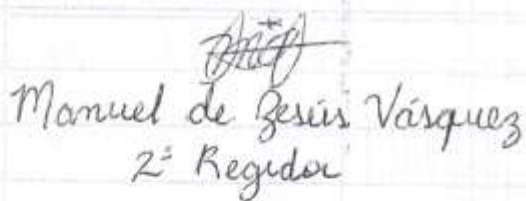 Manuel de Jesús Vásquez
2º Regidor